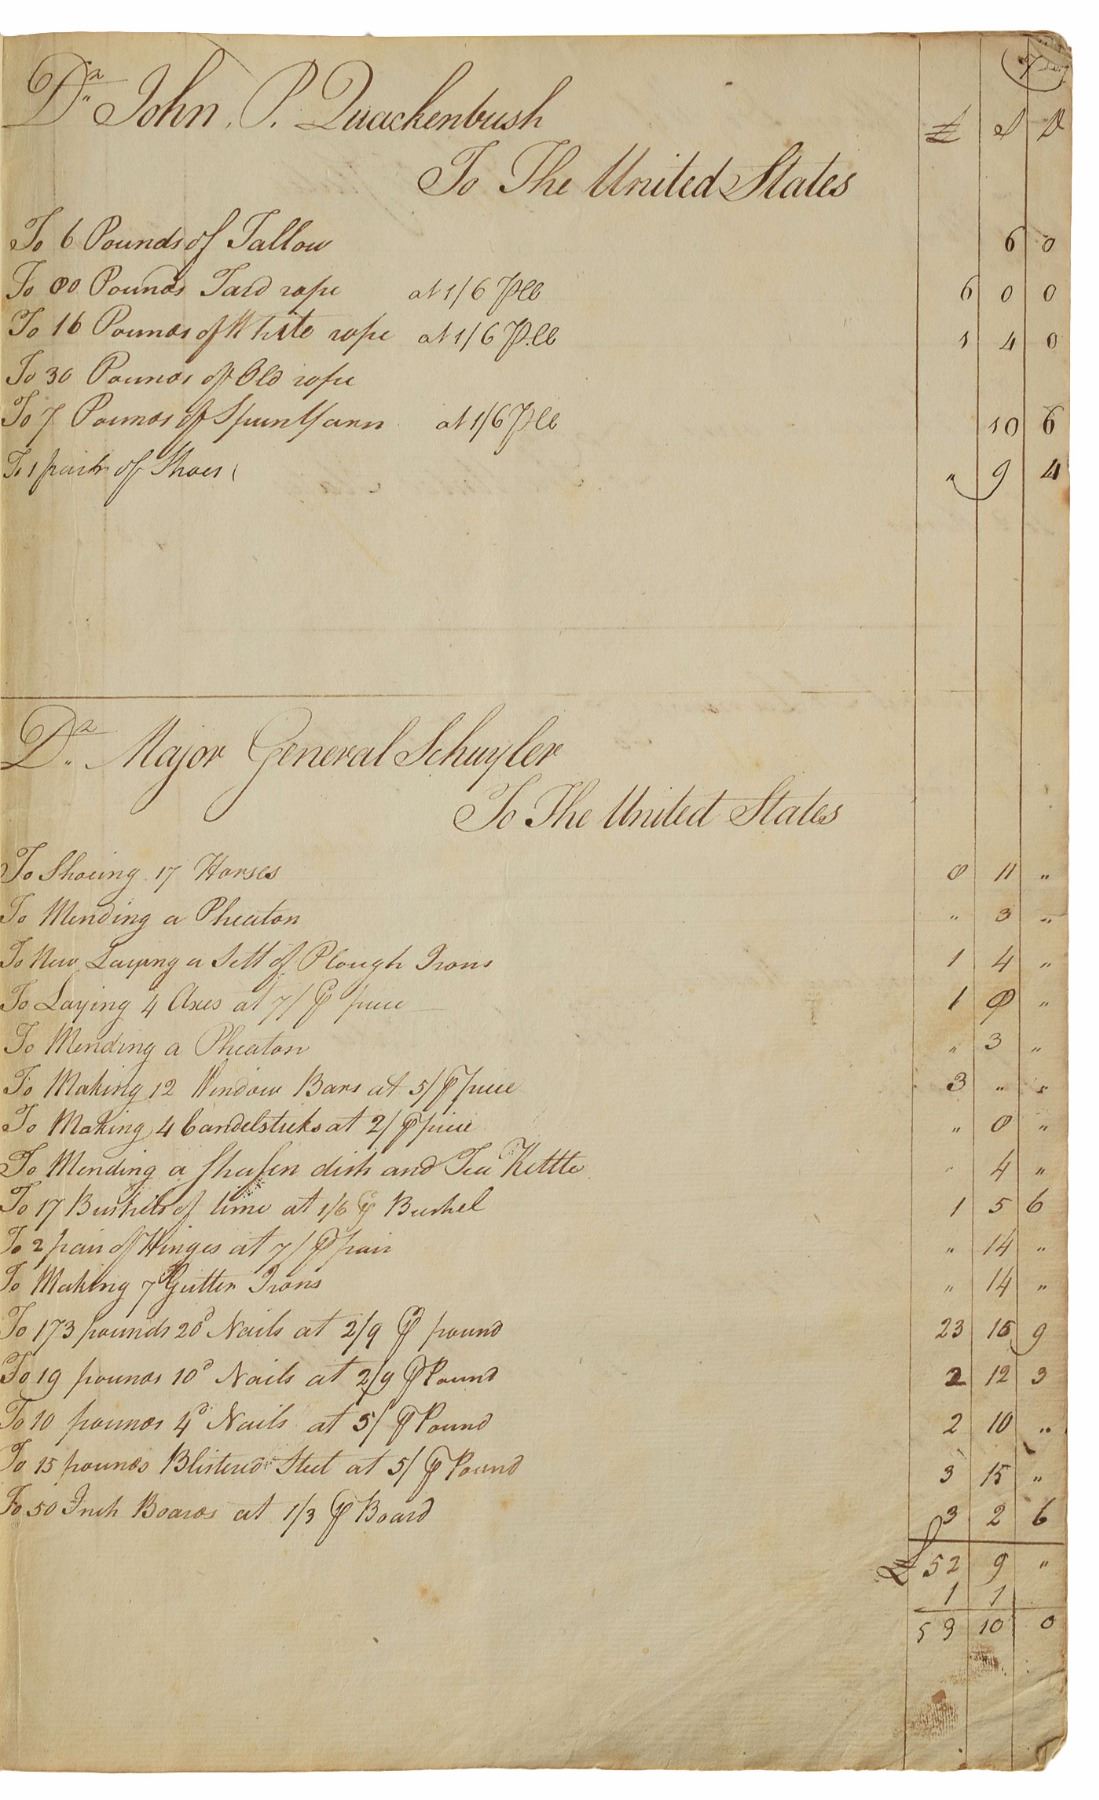 7
£ S D
Dr. John. P. Quackenbush
To The United States
To 6 Pounds of Tallow 6 0
To 80 Pounds Tard rope at 1/6 ⅌ lb 6 0 0
To 16 Pounds of White rope at 1/6 ⅌ lb 1 4 0
To 30 Pounds of Old rope
To 7 Pounds of Spun Yarn at 1/6 ⅌ lb 10 6
To 1 pair of Shoes " 9 4
Dr. Major General Schuyler
To The United States
To Shoeing 17 Horses 8 11 "
To Mending a Pheaton " 3 "
To New Laying a Sett of Plough Irons 1 4 "
To Laying 4 Axes at 7/ ⅌ piece 1 8 "
To Mending a Pheaton " 3 "
To Making 12 Window Bars at 5/ ⅌ piece 3 " "
To Making 4 Candelsticks at 2/ ⅌ piece " 8 "
To Mending a dish and Tea Kettle " 4 "
To 17 Bushels of lime at 1/6 ⅌ Bushel 1 5 6
To 2 pair of Hinges at 7/ ⅌ pair " 14 "
To Making 7 Gutter Irons " 14 "
To 173 pounds 20d Nails at 2/9 ⅌ pound 23 15 9
To 19 pounds 10d Nails at 2/9 ⅌ Pound 2 12 3
To 10 pounds 4d Nails at 5/ ⅌ Pound 2 10 "
To 15 pounds Blistered Steel at 5/ ⅌ Pound 3 15 "
To 50 Inch Boards at 1/3 ⅌ Board 3 2 6
£ 52 9 "
1 1
53 10 0